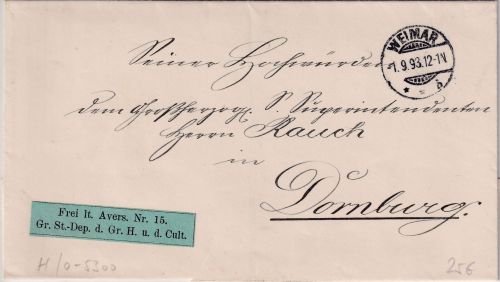 WEIMAR
1. 9. 93. 12-1N
* * a
Seiner Hochwürden
dem Großherzogl. S. Superintendenten
Herrn Rauch
in
Dornburg.
Frei lt. Avers. Nr. 15.
Gr. St.-Dep. d. Gr. H. u. d. Cult.
H/0-5300
256